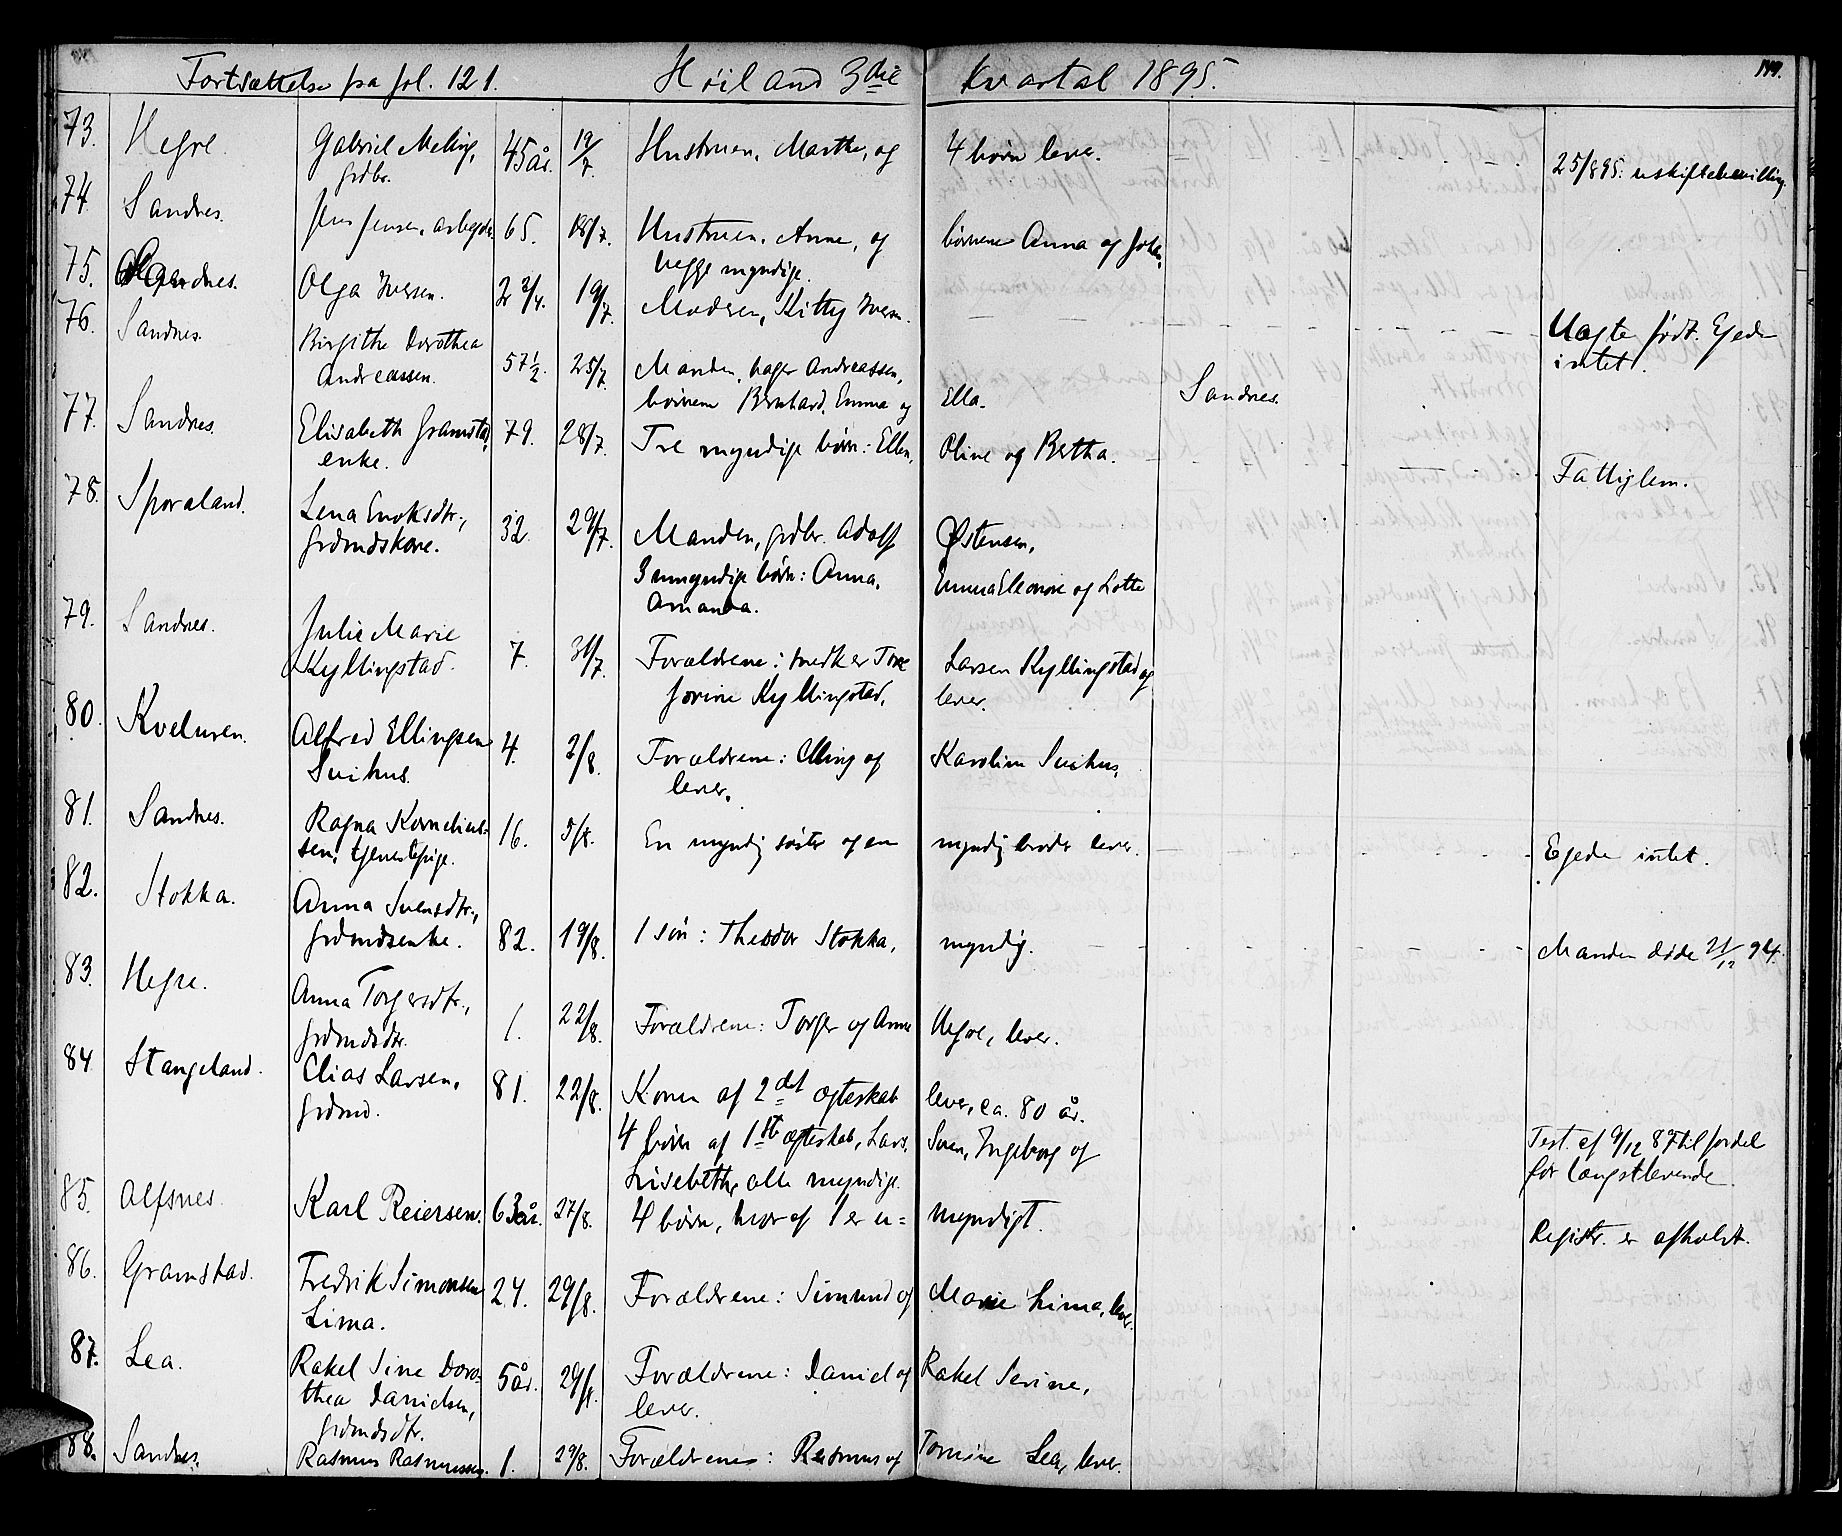 Fortsættelse fra fol. 121. Høiland 3die kvartal 1895. 144.
73. Hegre. Gabriel Meling, 45 år. 19/7. Hustruen, Marthe, og 4 børn lever.
grdbr. 25/8 95. uskiftebevilling.
74. Sandnes. Jens Jensen, arbeyder 65. 18/7. Hustruen, Anne, og børnene Anna og
begge myndige.
75. Sandnes. Olga Iversen. 2 3/4. 19/7. Moderen, Kitty Iversen. Uægte født. Ejede
intet.
76. Sandnes. Birgithe Dorothea
Andreassen. 57 1/2 25/7 Manden, bager Andreassen,
børnene Bernhard, Emma og Ella. Sandnes.
77. Sandnes. Elisabeth Gramstad, 79. 28/7. Tre myndige børn: Ellen, Oline og Bertha.
enke. Fattiglem.
78. Sporaland. Lena Enoksdtr.,
grdmdskone. 32. 29/7. Manden, grdbr. Adolf Østensen,
3 umyndige børn: Anna, Emma Eleonore og Lotte
Amanda.
79. Sandnes. Julie Marie
Kyllingstad. 7. 31/7. Forældrene: Tore Larsen Kyllingstad og
Jorine Kyllingstad, lever.
80. Kveluren. Alfred Ellingsen
Suihus. 4. 2/8. Forældrene: Elling og Karoline Suihus,
lever.
81. Sandnes. Ragna Kornelius-
sen, tjenestepige. 16. 5/8. En myndig søster og en myndig broder lever. Ejede intet.
82. Stokka. Anna Svensdtr.,
grdmdsenke. 82. 19/8. 1 søn: Theodor Stokka, myndig. Manden døde 21/12 94.
83. Hegre. Anna Torgersdtr.,
grdmdsdtr. 1. 22/8. Forældrene: Torger og Anne Hegre, lever.
84. Stangeland. Elias Larsen,
grdmd. 81. 22/8. Konen af 2det ægteskab lever, ca. 80 år.
4 børn af 1ste ægteskab, Lars, Sven, Ingeborg og Test. af 9/12 87 til fordel
Lisebethe, alle myndige. for længstlevende.
85. Alfsnes. Karl Reiersen. 63 år. 27/8. 4 børn, hvoraf 1 er u= myndigt. Registr. er afholdt.
86. Gramstad. Fredrik Simonsen
Lima. 24. 29/8. Forældrene: Simund og Marie Lima, lever.
87. Lea. Rakel Sine Doro-
thea Danielsen,
grdmdsdtr. 5 år. 29/8. Forældrene: Daniel og Rakel Serine,
lever.
88. Sandnes. Rasmus Rasmussen. 1. 29/8. Forældrene: Rasmus og Tomine Lea, lever.